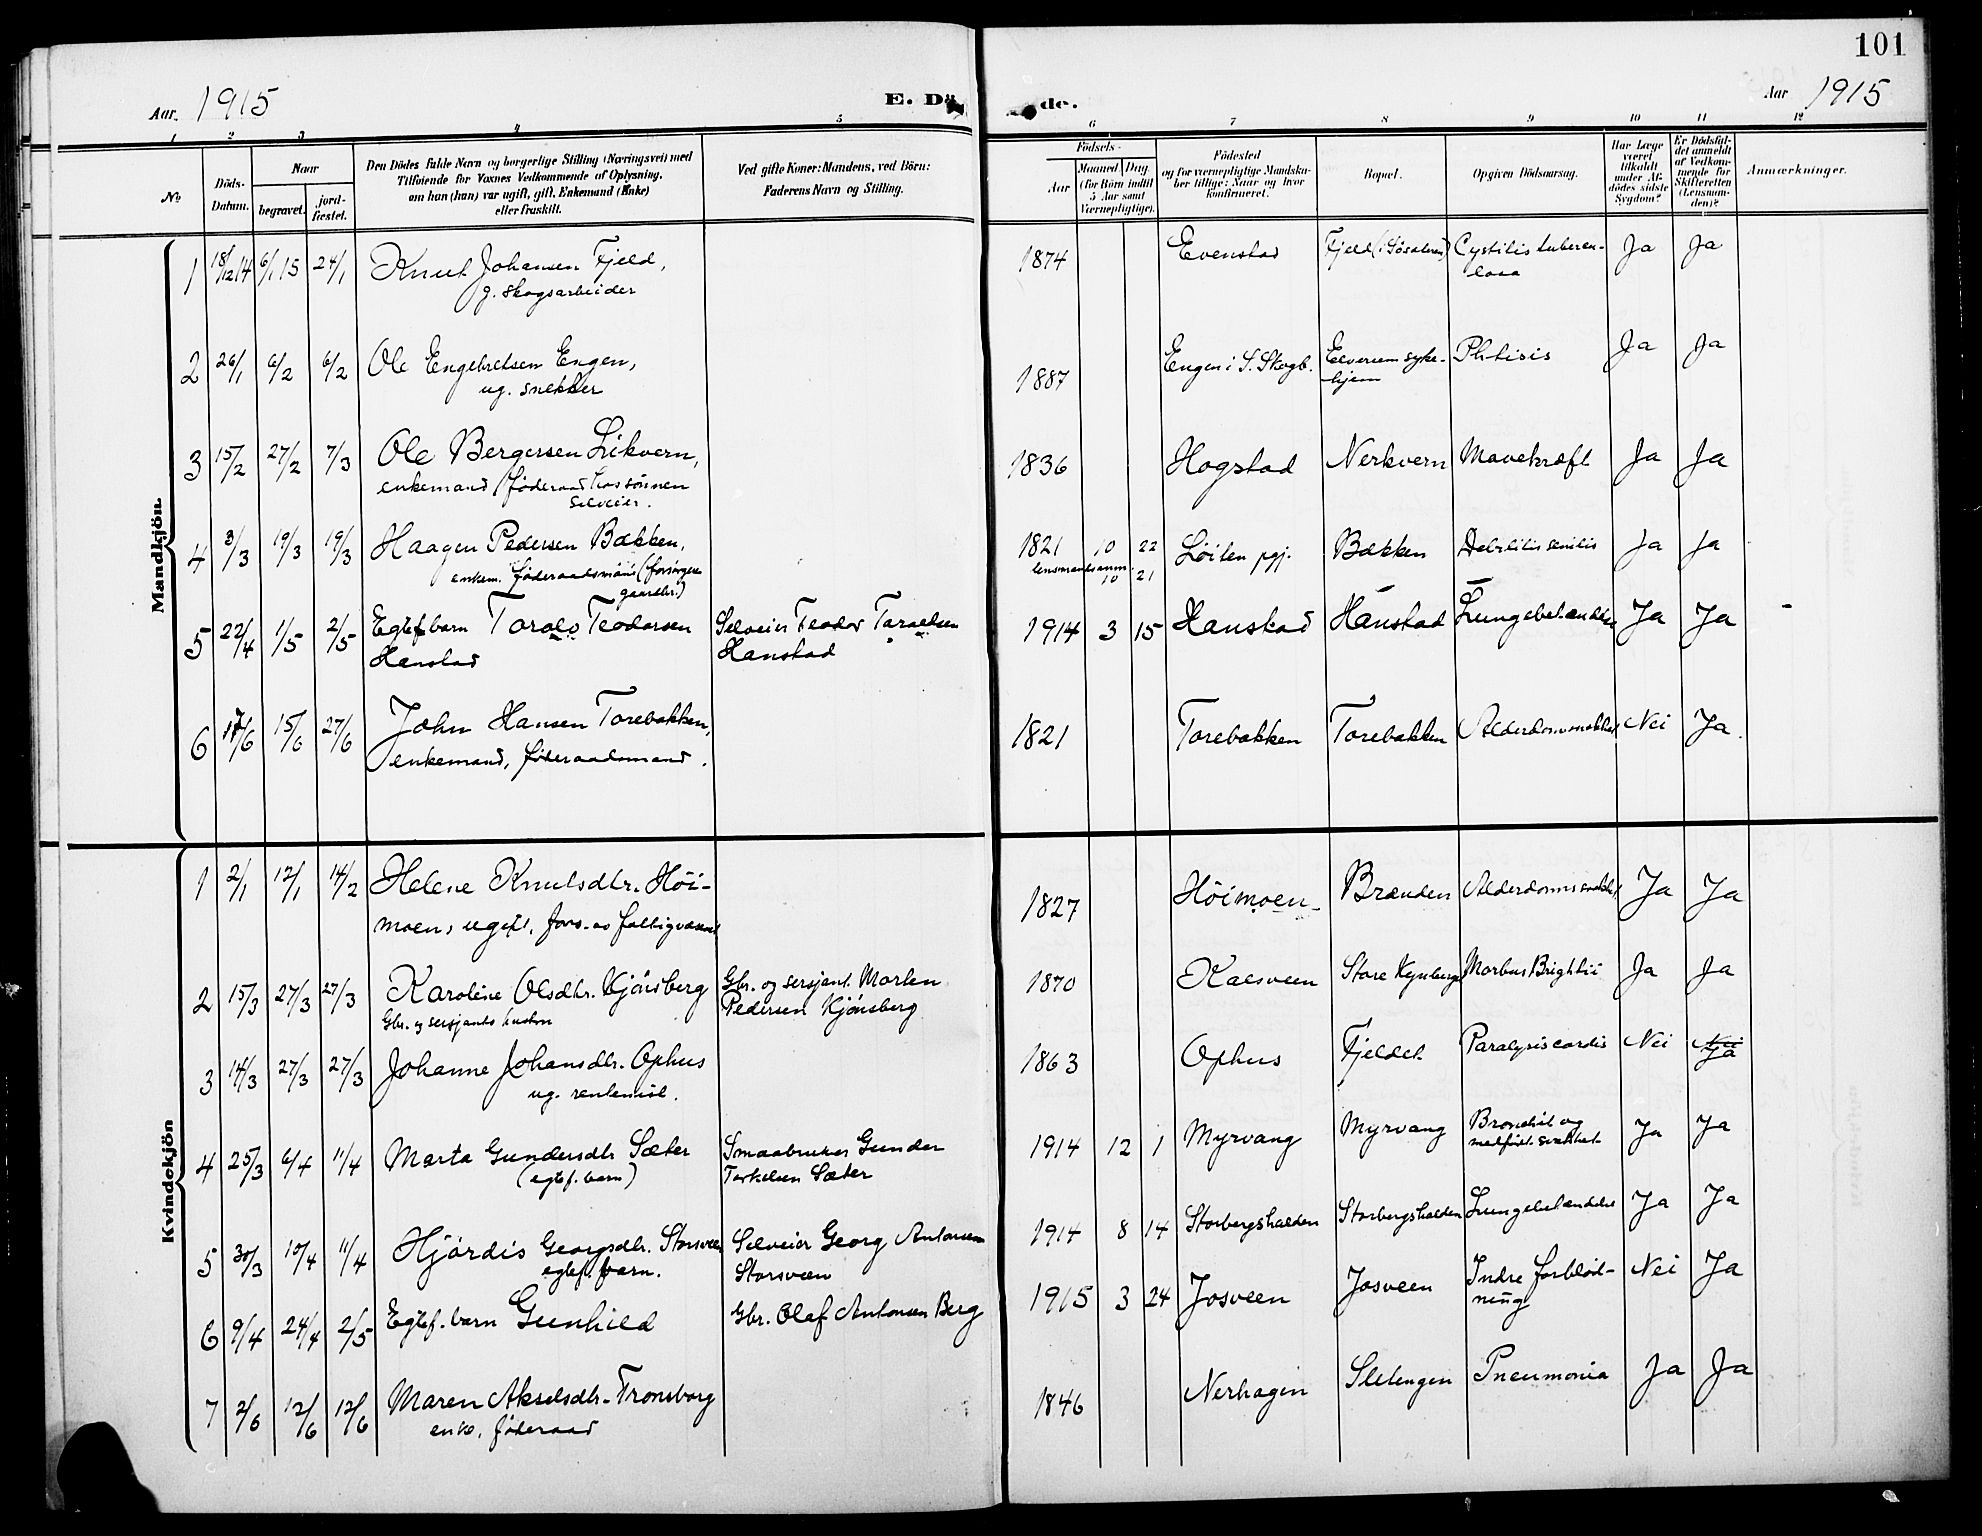 101
Aar. 1915
E. Dø
de.
Aar 1915
1 2 3 4 5 6 7 8 9 10 11 12
No
Döds-
Datum.
Naar
begravet.
jord-
fæstet.
Den Dödes fulde Navn og borgerlige Stilling (Næringsvei) med
Tilföiende for Voxnes Vedkommende af Oplysning,
om han (hun) var ugift, gift, Enkemand (Enke)
eller fraskilt.
Ved gifte Koner: Mandens, ved Börn:
Faderens Navn og Stilling.
Födsels-
Aar
Maaned
Dag.
(for Börn indtil
5 Aar samt
Værnepligtige).
Födested
og for værnepligtige Mandska-
ber tillige: Naar og hvor
konfirmeret.
Bopæl.
Opgiven Dödsaarsag.
Har Læge
været
tilkaldt
under Af-
dödes sidste
Sygdom?
Er Dödsfal-
det anmeldt
af Vedkom-
mende for
Skifteretten
(Lensman-
den)?
Anmærkninger.
Mandkjön.
1 18/12 14 6/1 15 24/1 Knut Johansen Fjeld, 1874 Evenstad Fjeld Cystitis tubercu- Ja Ja
g. skogsarbeider losa
2 26/1 6/2 6/2 Ole Engebretsen Engen, 1887 Engen i S. Skogb. Elverum syke- Phtisis Ja Ja
ug. snekker hjem
3 15/2 27/2 7/3 Ole Bergersen Likvern, 1836 Hogstad Nerkvern Mavekræft Ja Ja
enkemand (föderaad hos sönnen
selveier.
4 3/3 19/3 19/3 Haagen Pedersen Bækken, 1821 10 22 Löiten pgj. Bækken Debilitis senilis Ja Ja
enkem. föderaadsmand (forsörges lensmandsanm. 10 21
gaardbr.)
5 22/4 1/5 2/5 Egtef barn Torolv Teodorsen Selveier Teodor Taraldsen 1914 3 15 Hanstad Hanstad Lungebetændelse Ja Ja
Hanstad Hanstad
6 17/6 15/6 27/6 John Hansen Torebakken, 1821 Torebakken Torebakken Alderdomssvakhet Nei Ja
enkemand, föderaadsmand.
Kvindekjön
1 2/1 12/1 14/2 Helene Knutsdtr. Höi- 1827 Höimoen Brænden Alderdomssvakhet Ja Ja
moen, ugift, fors. av fattigvæsnet
2 15/3 27/3 27/3 Karoline Olsdtr. Kjönsberg Gbr. og sersjant Morten 1870 Kaesveen Store Kynberget Morbus Brightii Ja Ja
Gbr. og sersjants hustru Pedersen Kjönsberg
3 14/3 27/3 27/3 Johanne Johansdtr. Ophus 1863 Ophus Fjeldet Paralysis cordis Nei Nei
ug. rentenist. Ja
4 25/3 6/4 11/4 Marta Gundersdtr Sæter Smaabruker Gunder 1914 12 1 Myrvang Myrvang Bronchit og Ja Ja
(egtef. barn) Torkelsen Sæter medfödt svakhet
5 30/3 10/4 11/4 Hjördis Georgsdtr. Storsveen Selveier Georg Antonsen 1914 8 14 Storbergshalden Storbergshalden Lungebetændelse Ja Ja
egtef. barn. Storsveen
6 9/4 24/4 2/5 Egtef. barn Gunhild Gbr. Olaf Antonsen Berg 1915 3 24 Josveen Josveen Indre forblöd- Nei Ja
ning
7 2/6 12/6 12/6 Maren Akselsdtr. Tronsborg 1846 Nerhagen Sletengen Pneumonia Ja Ja
enke, föderaad